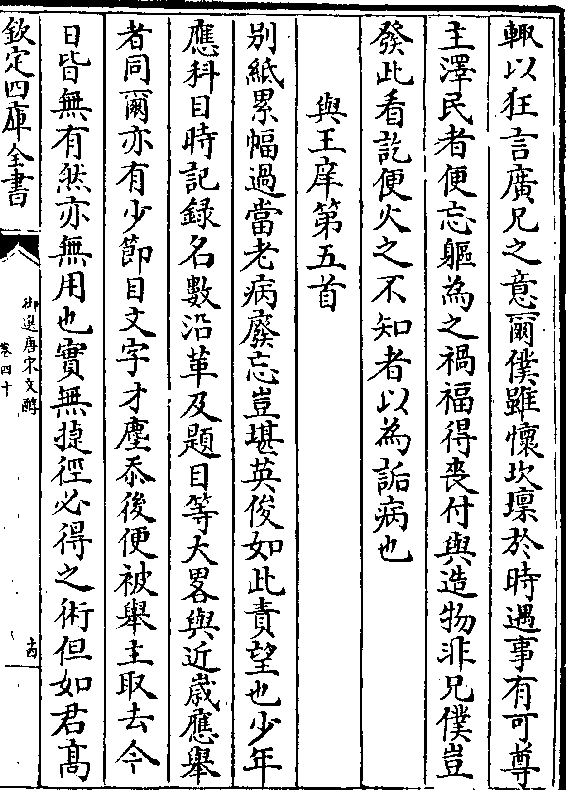 輒以狂言廣兄之意爾僕雖懷坎壈於時遇事有可尊
主澤民者便忘軀為之禍福得喪付與造物非兄僕豈
發此看訖便火之不知者以為詬病也
與王庠第五首
別紙累幅過當老病廢忘豈堪英俊如此責望也少年
應科目時記録名數沿革及題目等大畧與近歲應舉
者同爾亦有少節目文字才塵忝後便被舉主取去今
日皆無有然亦無用也實無捷徑必得之術但如君髙
欽定四庫全書
御選唐宋文醇
卷四十
十四